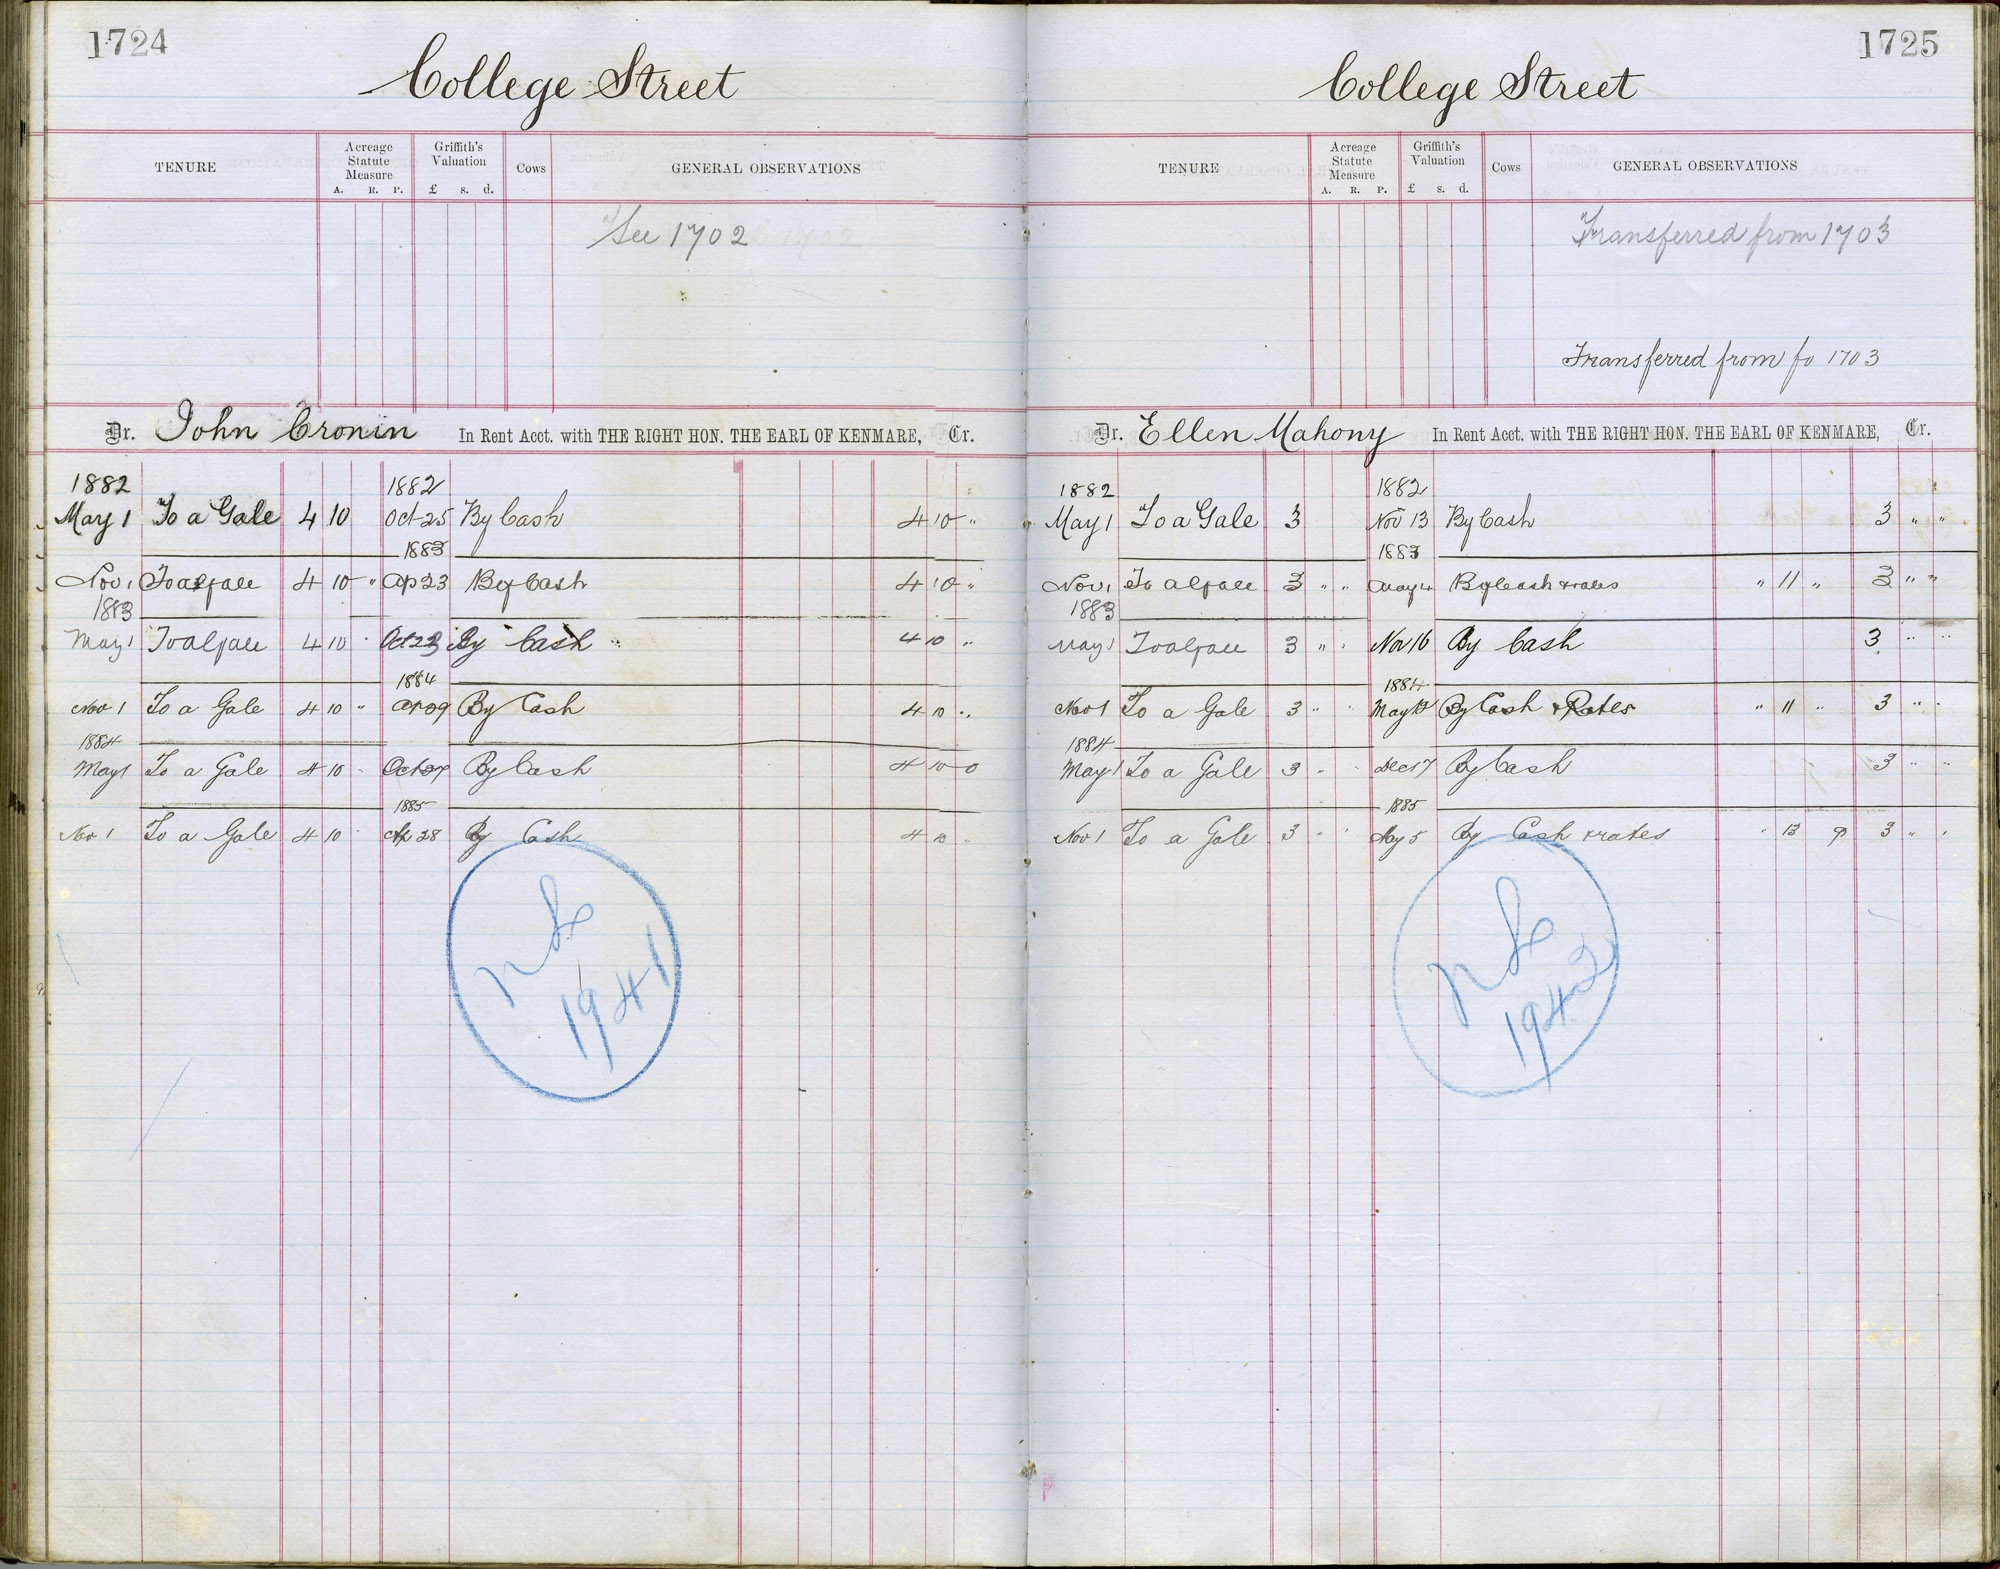 1724
College Street
TENURE Acreage Statute Measure A. R. P. Griffith's Valuation £ s. d. Cows GENERAL OBSERVATIONS
See 1702
Dr. John Cronin In Rent Acct. with THE RIGHT HON. THE EARL OF KENMARE, Cr.
1882 1882
May 1 To a Gale 4 10 Oct 25 By Cash 4 10 "
1883
Nov 1 To a Gale 4 10 " Ap 23 By Cash 4 10 "
1883
May 1 To a Gale 4 10 " Oct 23 By Cash " 4 10 "
1884
Nov 1 To a Gale 4 10 " Ap 29 By Cash 4 10 "
1884
May 1 To a Gale 4 10 " Oct 27 By Cash 4 10 0
1885
Nov 1 To a Gale 4 10 " Ap 28 By Cash 4 10 "
NL
1941
1725
College Street
TENURE Acreage Statute Measure A. R. P. Griffith's Valuation £ s. d. Cows GENERAL OBSERVATIONS
Transferred from 1703
Transferred from fo 1703
Dr. Ellen Mahony In Rent Acct. with THE RIGHT HON. THE EARL OF KENMARE, Cr.
1882 1882
May 1 To a Gale 3 Nov 13 By Cash 3 " "
1883
Nov 1 To a Gale 3 " " May 4 By Cash & rates " 11 " 3 " "
1883
May 1 To a Gale 3 " " Nov 16 By Cash 3 " "
1884
Nov 1 To a Gale 3 " " May By Cash & Rates " 11 " 3 " "
1884
May 1 To a Gale 3 " " Dec 17 By Cash 3 " "
1885
Nov 1 To a Gale 3 " " May 5 By Cash & rates " 13 9 3 " "
NL
1942